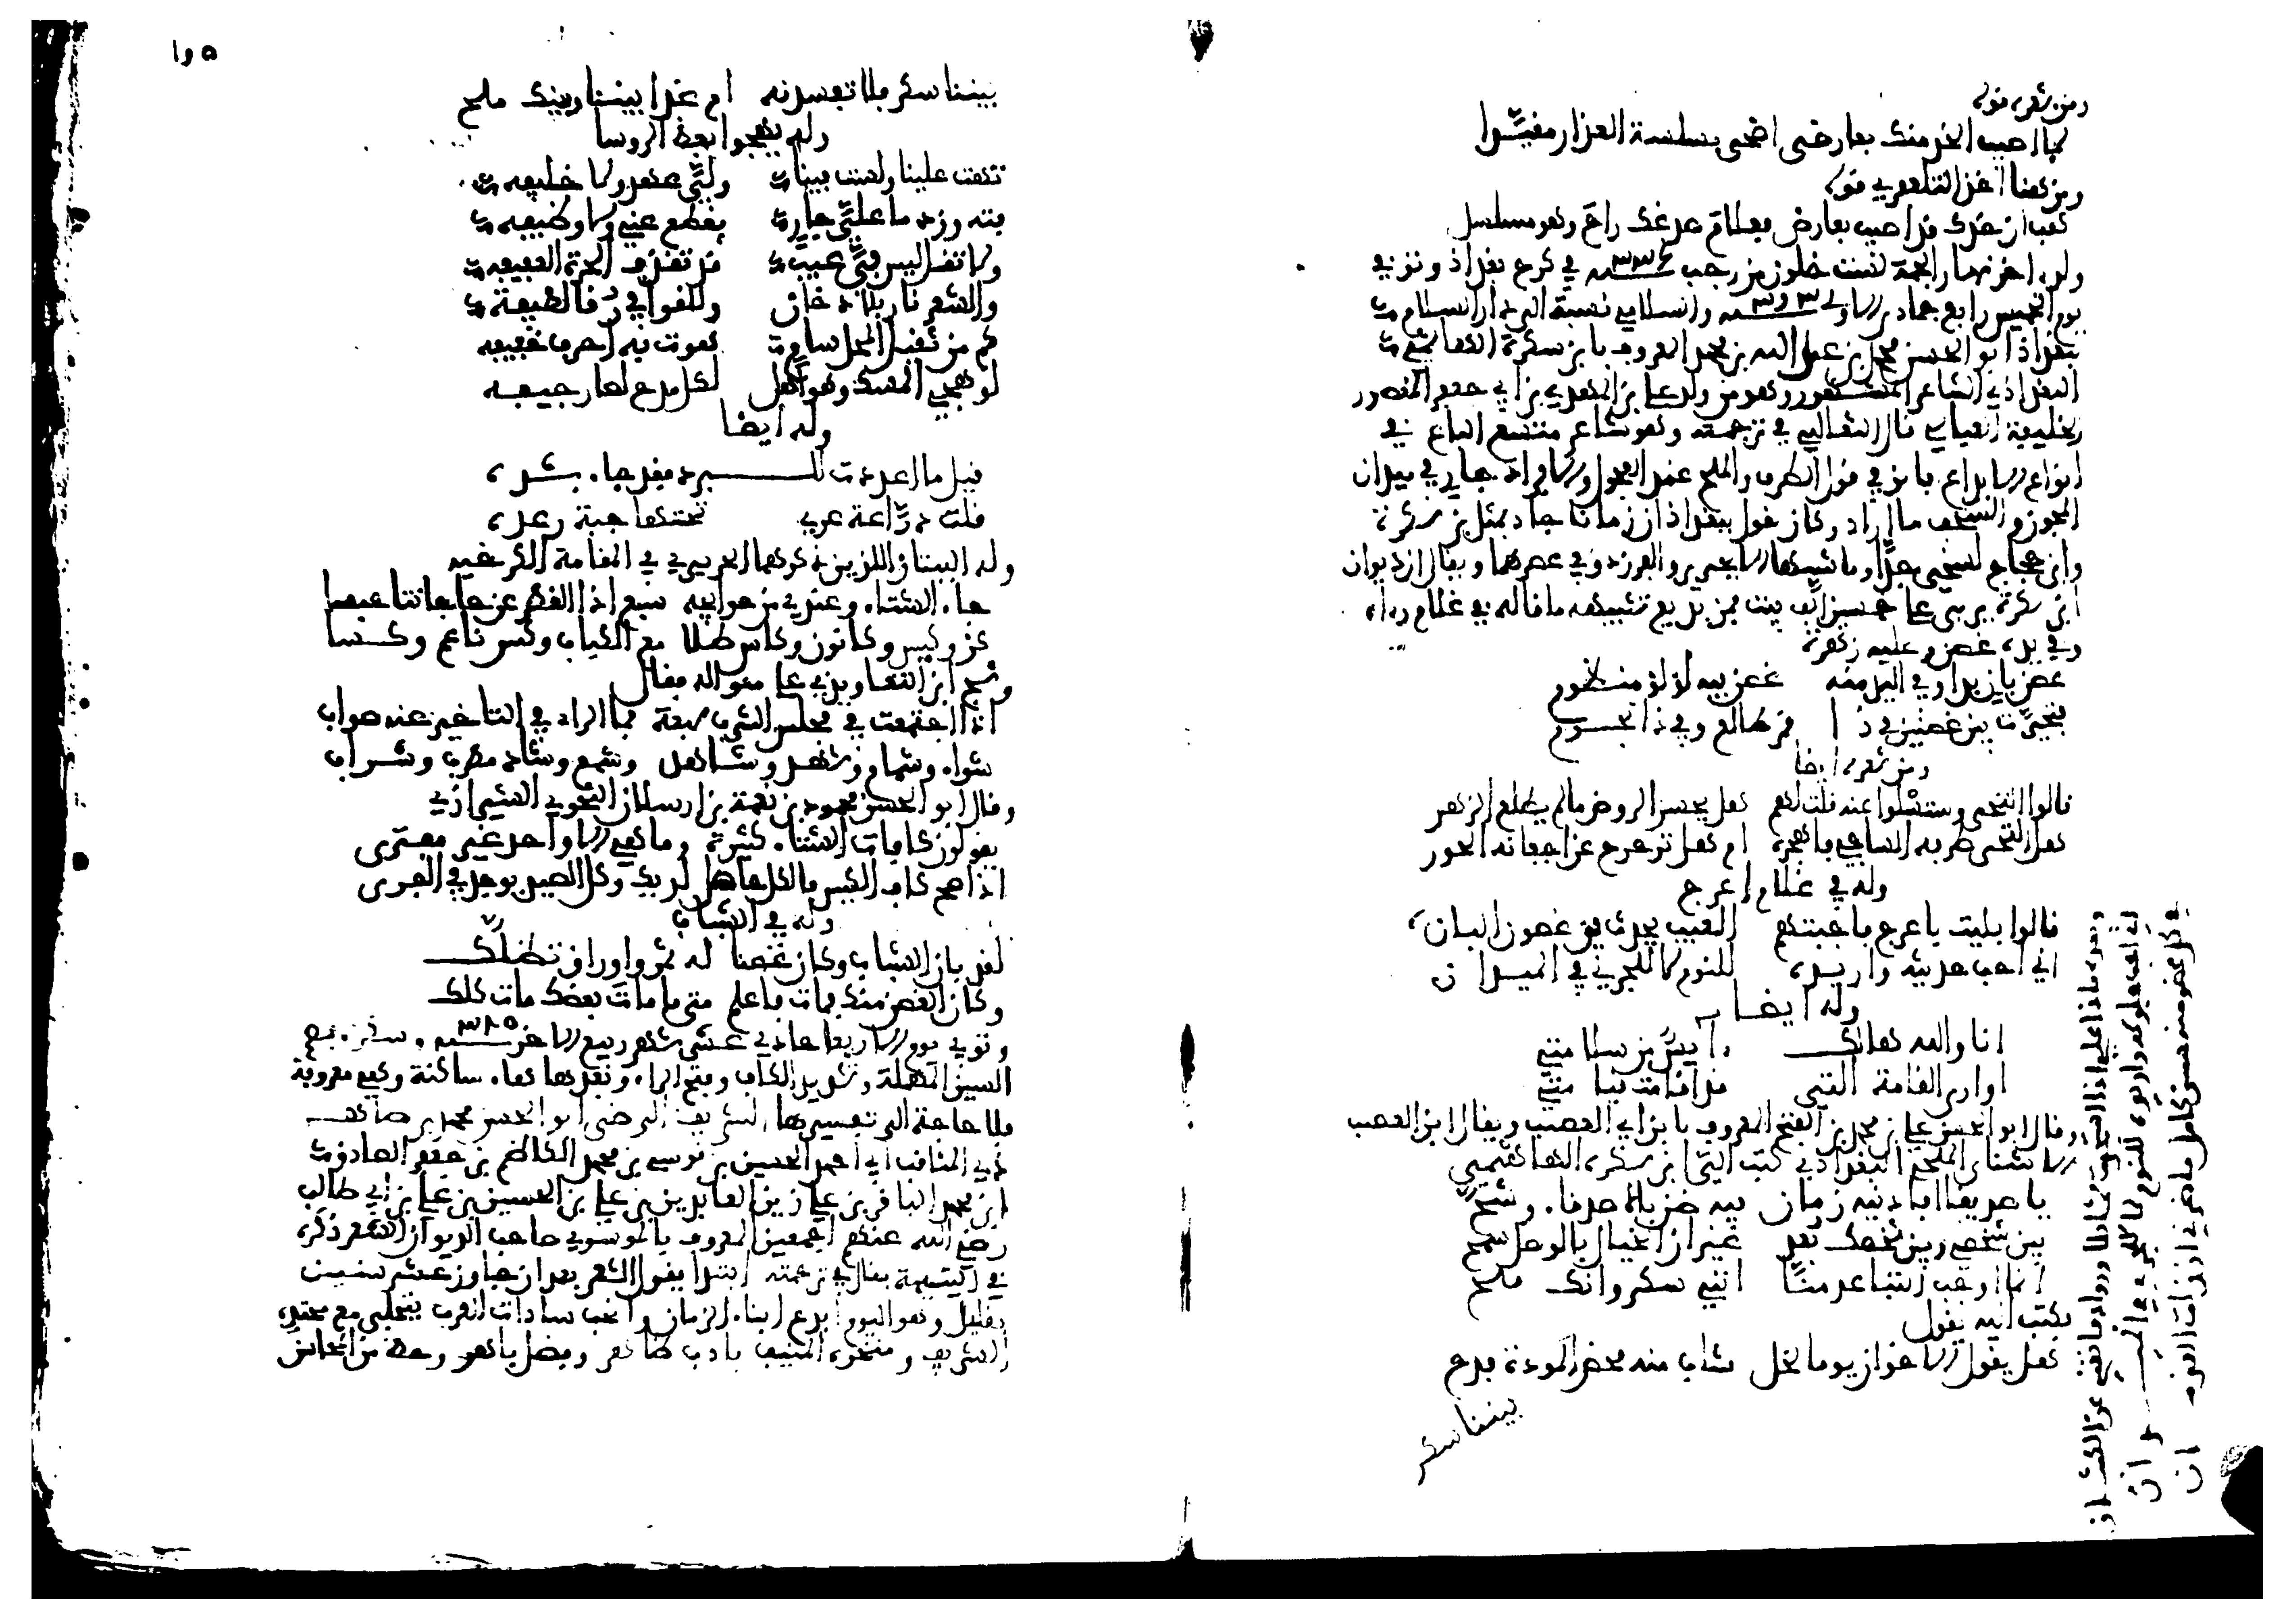 ومن شعره قوله
لما اصيب الخد منك بعارض اضحى بسلسة العذار مقيدا
ومن هنا اخذ التلعفري قوله
هب ان خدك قد اصيب بعارض فعلام صدغك راح وهو مسلسل
ولد اخر نهار الجمعة لست خلون من رجب سنة ٣٣٦ في كرخ بغداذ وتوفي
يوم الخميس رابع جمادى الاولى والسلامي نسبة الى دار السلام
بغداذ ابو الحسن محمد بن عبد الله بن محمد المعروف بابن سكرة الهاشمي
البغداذي الشاعر المشهور وهو من ولد علي بن المهدي بن ابي جعفر المنصور
الخليفة العباسي قال الثعالبي في ترجمته وهو شاعر متسع الباع في
انواع الابداع فائق في قول الطرف والملح عند الفحول والافراد جار في ميدان
المجون والسخف ما اراد وكان يقول ببغداذ ان زمانا جاد بمثل بن سكرة
وابن حجاج لسخي جدا وما شبهها الا بجرير والفرزدق في عصرهما ويقال ان ديوان
ابن سكرة يربي على خمسين الف بيت فمن بديع تشبيهه ما قاله في غلام رءاه
وفي يده غصن وعليه زهرة
غصن بان بدا وفي اليد منه غصن فيه لؤلؤ منظوم
فتحيرت بين غصنين في ذا قمر طالع وفي ذا نجوم
ومن شعره ايضا
قالوا التحى وستسلوا عنه قلت لهم هل يحسن الروض ما لم يطلع الزهر
هل التحى طرفه الساجي فاهجره ام هل تزحزح عن اجفانه الحور
وله في غلام اعرج
قالوا بليت باعرج فاجبتهم العيب يحدث في غصون البان
اني احب حديثه واريده للنوم لا للجري في الميدان
وله ايضا
انا والله هالك ءايس من سلامتي
او ارى القامة التي قد اقامت قيامتي
وقال ابو الحسن علي بن محمد بن الفتح المعروف بابن ابي العصب ويقال ابن العصب
الاشناني الملحي البغداذي كتب الي ابن سكره الهاشمي
يا صديقا افادنيه زمان فيه ضن بالاصدقاء وشح
بين شخصي وبين شخصك بعد غير ان الخيال بالوصل سمح
انما اوجب التباعد منا انني سكر وانك ملح
فكتب اليه يقول
هل يقول الاخوان يوما لخل شاب منه محض المودة قدح
بيننا سكر
١٥٥
بيننا سكر فلا تفسدنه ام غدا بيننا وبينك ملح
وله يهجوا بعض الروسا
تهت علينا ولست فينا ولي عهد ولا خليفه
فته وزد ما علي جار يقطع عني ولا وظيفه
ولا تقل ليس في عيب قد تقذف الحرة العفيفه
والشعر نار بلا دخان وللقوافي رقا لطيفة
كم من ثقيل المحل سام هوت به احرف خفيفه
لو هجي المسك وهو اهل لكل مدح لصار جيفه
وله ايضا
قيل ما اعددت للبرد فقد جاء بشده
قلت دراعة عري تحتها جبة رعده
وله البيتان اللذين ذكرهما الحريري في المقامة الكرخيه
جاء الشتاء وعندي من حوائجه سبع اذا القطر عن حاجاتنا حبسا
كن وكيس وكانون وكاس طلا مع الكباب وكس ناعم وكسا
ونسج ابن التعاويذي على منواله فقال
اذا اجتمعت في مجلس الشرب سبعة فما الراد في التاخير عنه صواب
شواء وشمام وشهد وشاهد وشمع وشاد مطرب وشراب
وقال ابو الحسن محمود بن نعمة بن ارسلان النحوي الشيرازي
يقولون كافات الشتاء كثيرة وما هي الا واحد غير مفترى
اذا صح كاف الكيس فالكل حاصل لديك وكل الصيد يوجد في الفرى
وله في الشباب
لقد بان الشباب وكان غصنا له ثمر واوراق تظلك
وكان البعض منك فمات فاعلم متى ما مات بعضك مات كلك
وتوفي يوم الاربعا حادي عشر شهر ربيع الاخر سنة ٣٨٥ وسكرة بضم
السين المهملة وتشديد الكاف وفتح الراء وبعدها هاء ساكنة وهي معروفة
فلا حاجة الى تفسيرها الشريف الرضي ابو الحسن محمد بن طاهر
ذي المناقب ابي احمد الحسين بن موسى بن محمد الكاظم بن جعفر الصادق
ابن محمد الباقر بن علي زين العابدين بن علي بن الحسين بن علي بن ابي طالب
رضي الله عنهم اجمعين المعروف بالموسوي صاحب الديوان الشعر ذكره
في اليتيمة فقال في ترجمته ابتدا يقول الشعر بعد ان جاوز عشر سنين
بقليل وهو اليوم ابدع ابناء الزمان وانجب سادات العرب يتحلى مع محتده
الشريف ومفخره المنيف بادب ظاهر وفضل باهر وحظ من المحاسن
اني احب جلوسه واريده للنوم لا للجري في الميدان
في كل عضو منه حسن كامل ما ضرني ان زلت القدمان